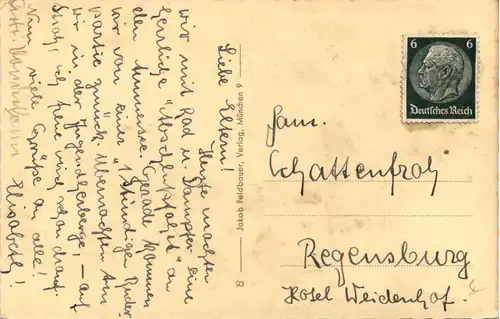 Liebe Eltern!
Heute machten
wir mit Rad u. Dampfer eine
herrliche "Abschlußfahrt" an
den Ammersee. Gerade kommen
wir von einer 1 stündigen Ruder-
partie zurück. Übernachten tun
wir in der Jugendherberge, – auf
Stroh, ich freu mich schon drauf.
Nun viele Grüße an alle!
Elisabeth!
Jakob Feldbauer, Verlag, München 9
93
6 6
Deutsches Reich
Fam.
Schattenfroh
Regensburg
Hotel Weidenhof.